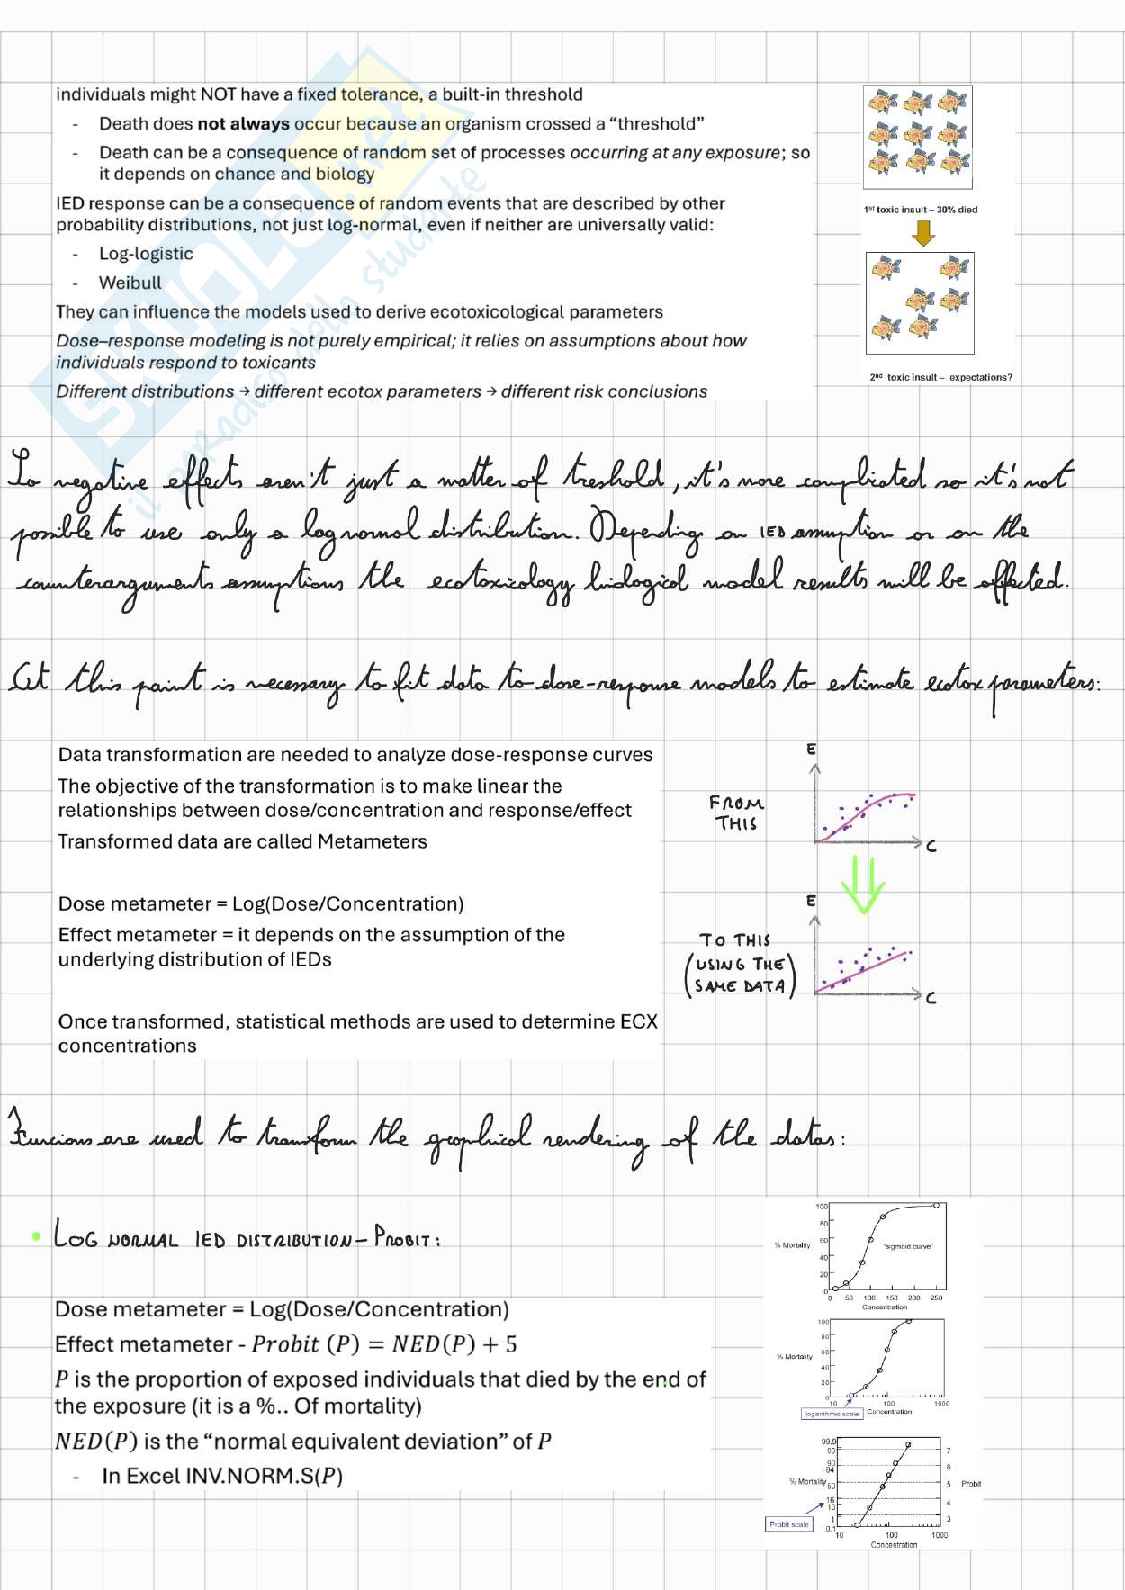 individuals might NOT have a fixed tolerance, a built-in threshold
- Death does not always occur because an organism crossed a “threshold”
- Death can be a consequence of random set of processes occurring at any exposure; so
it depends on chance and biology
IED response can be a consequence of random events that are described by other
probability distributions, not just log-normal, even if neither are universally valid:
- Log-logistic
- Weibull
They can influence the models used to derive ecotoxicological parameters
Dose–response modeling is not purely empirical; it relies on assumptions about how
individuals respond to toxicants
Different distributions → different ecotox parameters → different risk conclusions
1st toxic insult – 30% died
2nd toxic insult – expectations?
SKUOLA.net
il paradiso dello studente
So negative effects aren't just a matter of treshold, it's more complicated so it's not
possible to use only a lognormal distribution. Depending on IED assumption or on the
counterarguments assumptions the ecotoxicology biological model results will be affected.
At this point is necessary to fit data to dose-response models to estimate ecotox parameters:
Data transformation are needed to analyze dose-response curves
The objective of the transformation is to make linear the
relationships between dose/concentration and response/effect
Transformed data are called Metameters
Dose metameter = Log(Dose/Concentration)
Effect metameter = it depends on the assumption of the
underlying distribution of IEDs
Once transformed, statistical methods are used to determine ECX
concentrations
E
FROM
THIS
C
E
TO THIS
(USING THE
SAME DATA)
C
Funcions are used to transform the graphical rendering of the datas:
• LOG NORMAL IED DISTRIBUTION – PROBIT:
Dose metameter = Log(Dose/Concentration)
Effect metameter - Probit (P) = NED(P) + 5
P is the proportion of exposed individuals that died by the end of
the exposure (it is a %.. Of mortality)
NED(P) is the “normal equivalent deviation” of P
- In Excel INV.NORM.S(P)
100
80
60
40
20
0
% Mortality
"sigmoid curve"
0 50 100 150 200 250
Concentration
100
80
60
40
20
0
% Mortality
10 100 1000
logarithmic scale
Concentration
% Mortality
7
6
5
4
3
Probit
Probit scale
10 100 1000
Concentration